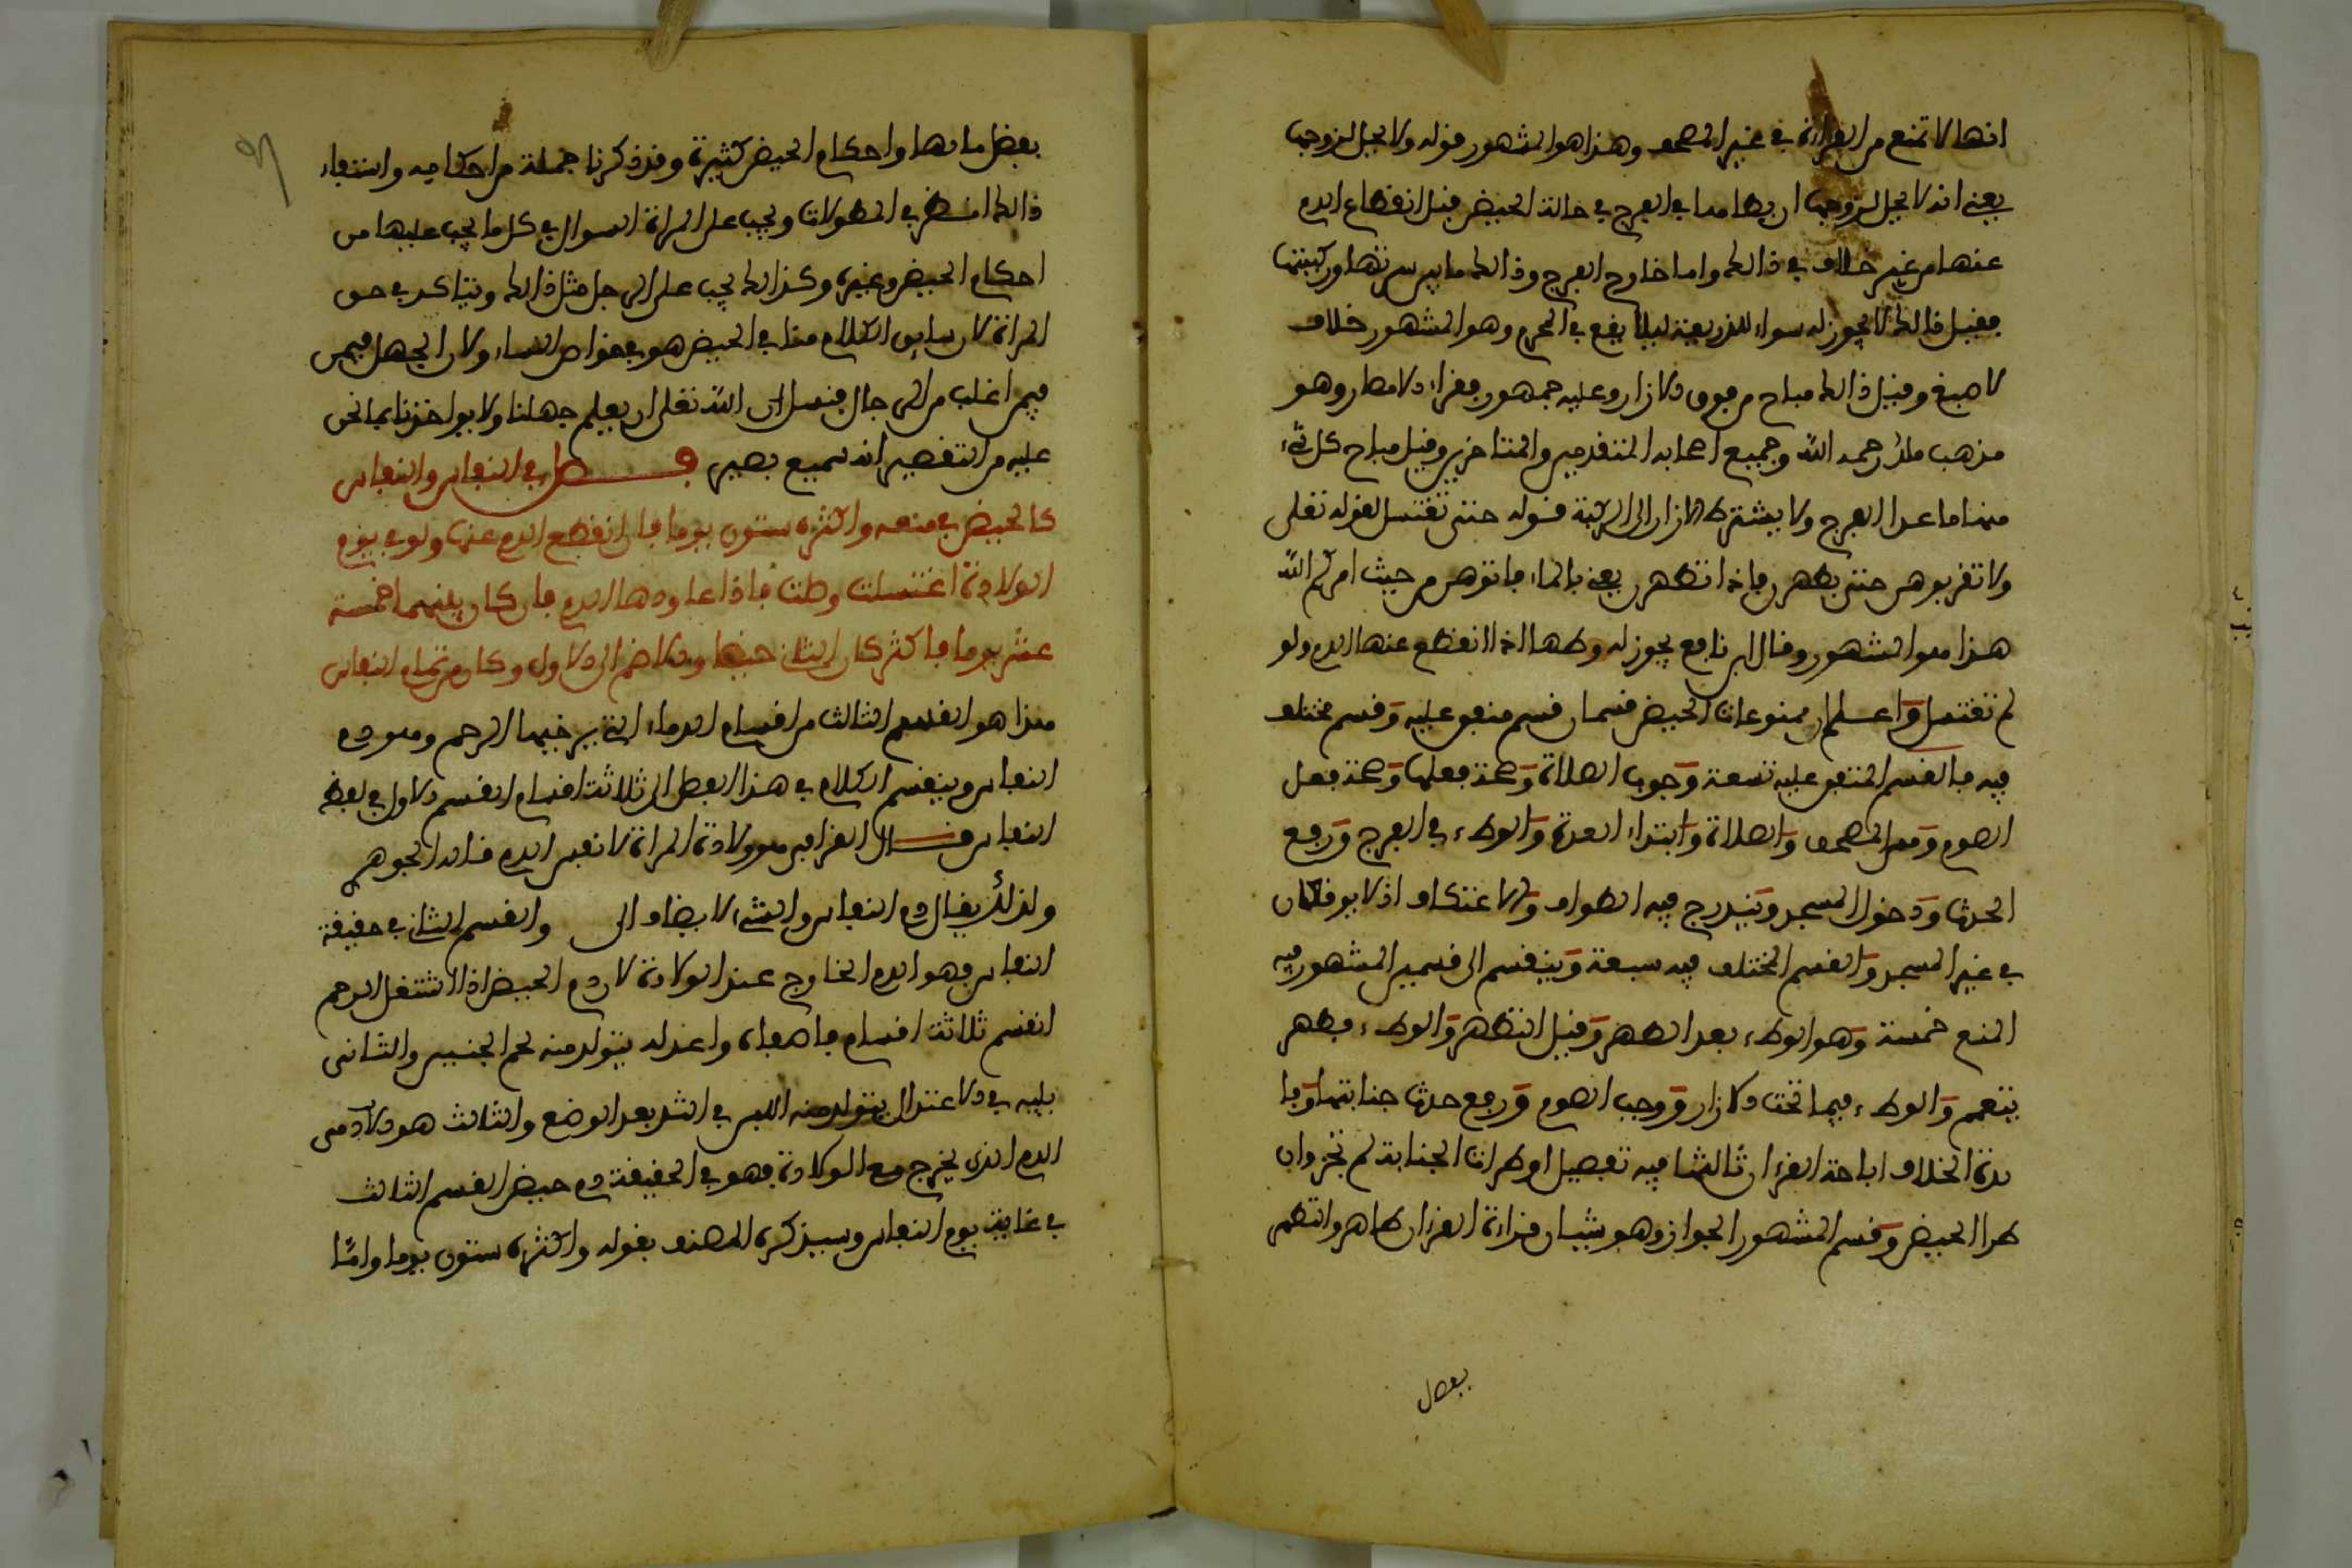 انها لا تمنع من القراءة في غير المصحف وهذا هو المشهور قوله ولا يحل لزوجها
يعني انه لا يحل لزوجها ان يطأها في الفرج في حالة الحيض قبل انقطاع الدم
عنها من غير خلاف في ذالك واما خارج الفرج وذالك ما بين سرتها وركبتها
فقيل ذالك لا يجوز له سواء للذريعة ليلا يقع في المحرم وهو المشهور خلاف
لاصبغ وقيل ذالك مباح من فوق الازار وعليه جمهور فقراء الامصار وهو
مذهب ملك رحمه الله وجميع اصحابه المتقدمين والمتاخرين وقيل مباح كل شيء
منها ما عدا الفرج ولا يشترط الازار الى الركبة قوله حتى تغتسل لقوله تعلى
ولا تقربوهن حتى يطهرن فاذا تطهرن يعني بالماء فاتوهن من حيث امركم الله
هذا هو المشهور وقال ابن نافع يجوز له وطئها اذا انقطع عنها الدم ولو
لم تغتسل واعلم ان ممنوعات الحيض قسمان قسم متفق عليه وقسم مختلف
فيه فالقسم المتفق عليه تسعة وجوب الصلاة وصحة فعلها وصحة فعل
الصوم ومس المصحف والصلاة وابتداء العدة والوطء في الفرج ورفع
الحدث ودخول المسجد ويندرج فيه الطواف والاعتكاف اذ لا يوقعان
في غير المسجد والقسم المختلف فيه سبعة وينقسم الى قسمين المشهور فيه
المنع خمسة وهو الوطء بعد الطهر وقبل التطهر والوطء بطهر
يتيمم والوطء فيما تحت الازار ووجب الصوم ورفع حدث جنابتها وفا
يدة الخلاف اباحة القرءان ثالثها فيه تفصيل ان طرات الجنابة لم تجز وان
طرا الحيض وقسم المشهور الجواز وهو شيئان قراءة القرءان طاهرا والتطهر
بفضل
بفضل مائها واحكام الحيض كثيرة وقد ذكرنا جملة من احكامه واستيفاء
ذالك انظر في المطولات ويجب على المراة السوال في كل ما يجب عليها من
احكام الحيض وغيره وكذالك يجب على الرجل مثل ذالك ويتاكد في حق
المراة لان سابق الكلام هنا في الحيض هو في خواص النساء ولان الجهل فيهن
فيهم اغلب من الرجال فنسال الله تعلى ان يعلم جهلنا ولا يواخذنا بما نحن
عليه من التقصير انه سميع بصير فصل في النفاس والنفاس
كالحيض في منعه واكثره ستون يوما فان انقطع الدم عنها ولو في يوم
الولادة اغتسلت وصلت فاذا عاودها الدم فان كان بينهما خمسة
عشر يوما فاكثر كان الثاني حيضا والا ضم الى الاول وكان من تمام النفاس
هذا هو القسم الثالث من اقسام الدماء التي يرخيها الرحم وهو دم
النفاس وينقسم الكلام في هذا الفصل الى ثلاثة اقسام القسم الاول في لفظ
النفاس قال القرافي هو ولادة المراة لا نفس الدم قاله الجوهري
ولذلك يقال دم النفاس والشيء لا يضاف الى والقسم الثاني في حقيقة
النفاس وهو الدم الخارج عند الولادة لان دم الحيض اذا اشتغل الرحم
انقسم ثلاثة اقسام فاصفاه واعدله يتولد منه لحم الجنين والثاني
يليه في الاعتدال يتولد منه اللبن في الثدي بعد الوضع والثالث هو الادمى
الدم الذي يخرج مع الولادة فهو في الحقيقة دم حيض القسم الثالث
في غاية يوم النفاس وسيذكره المصنف بقوله واكثره ستون يوما واما